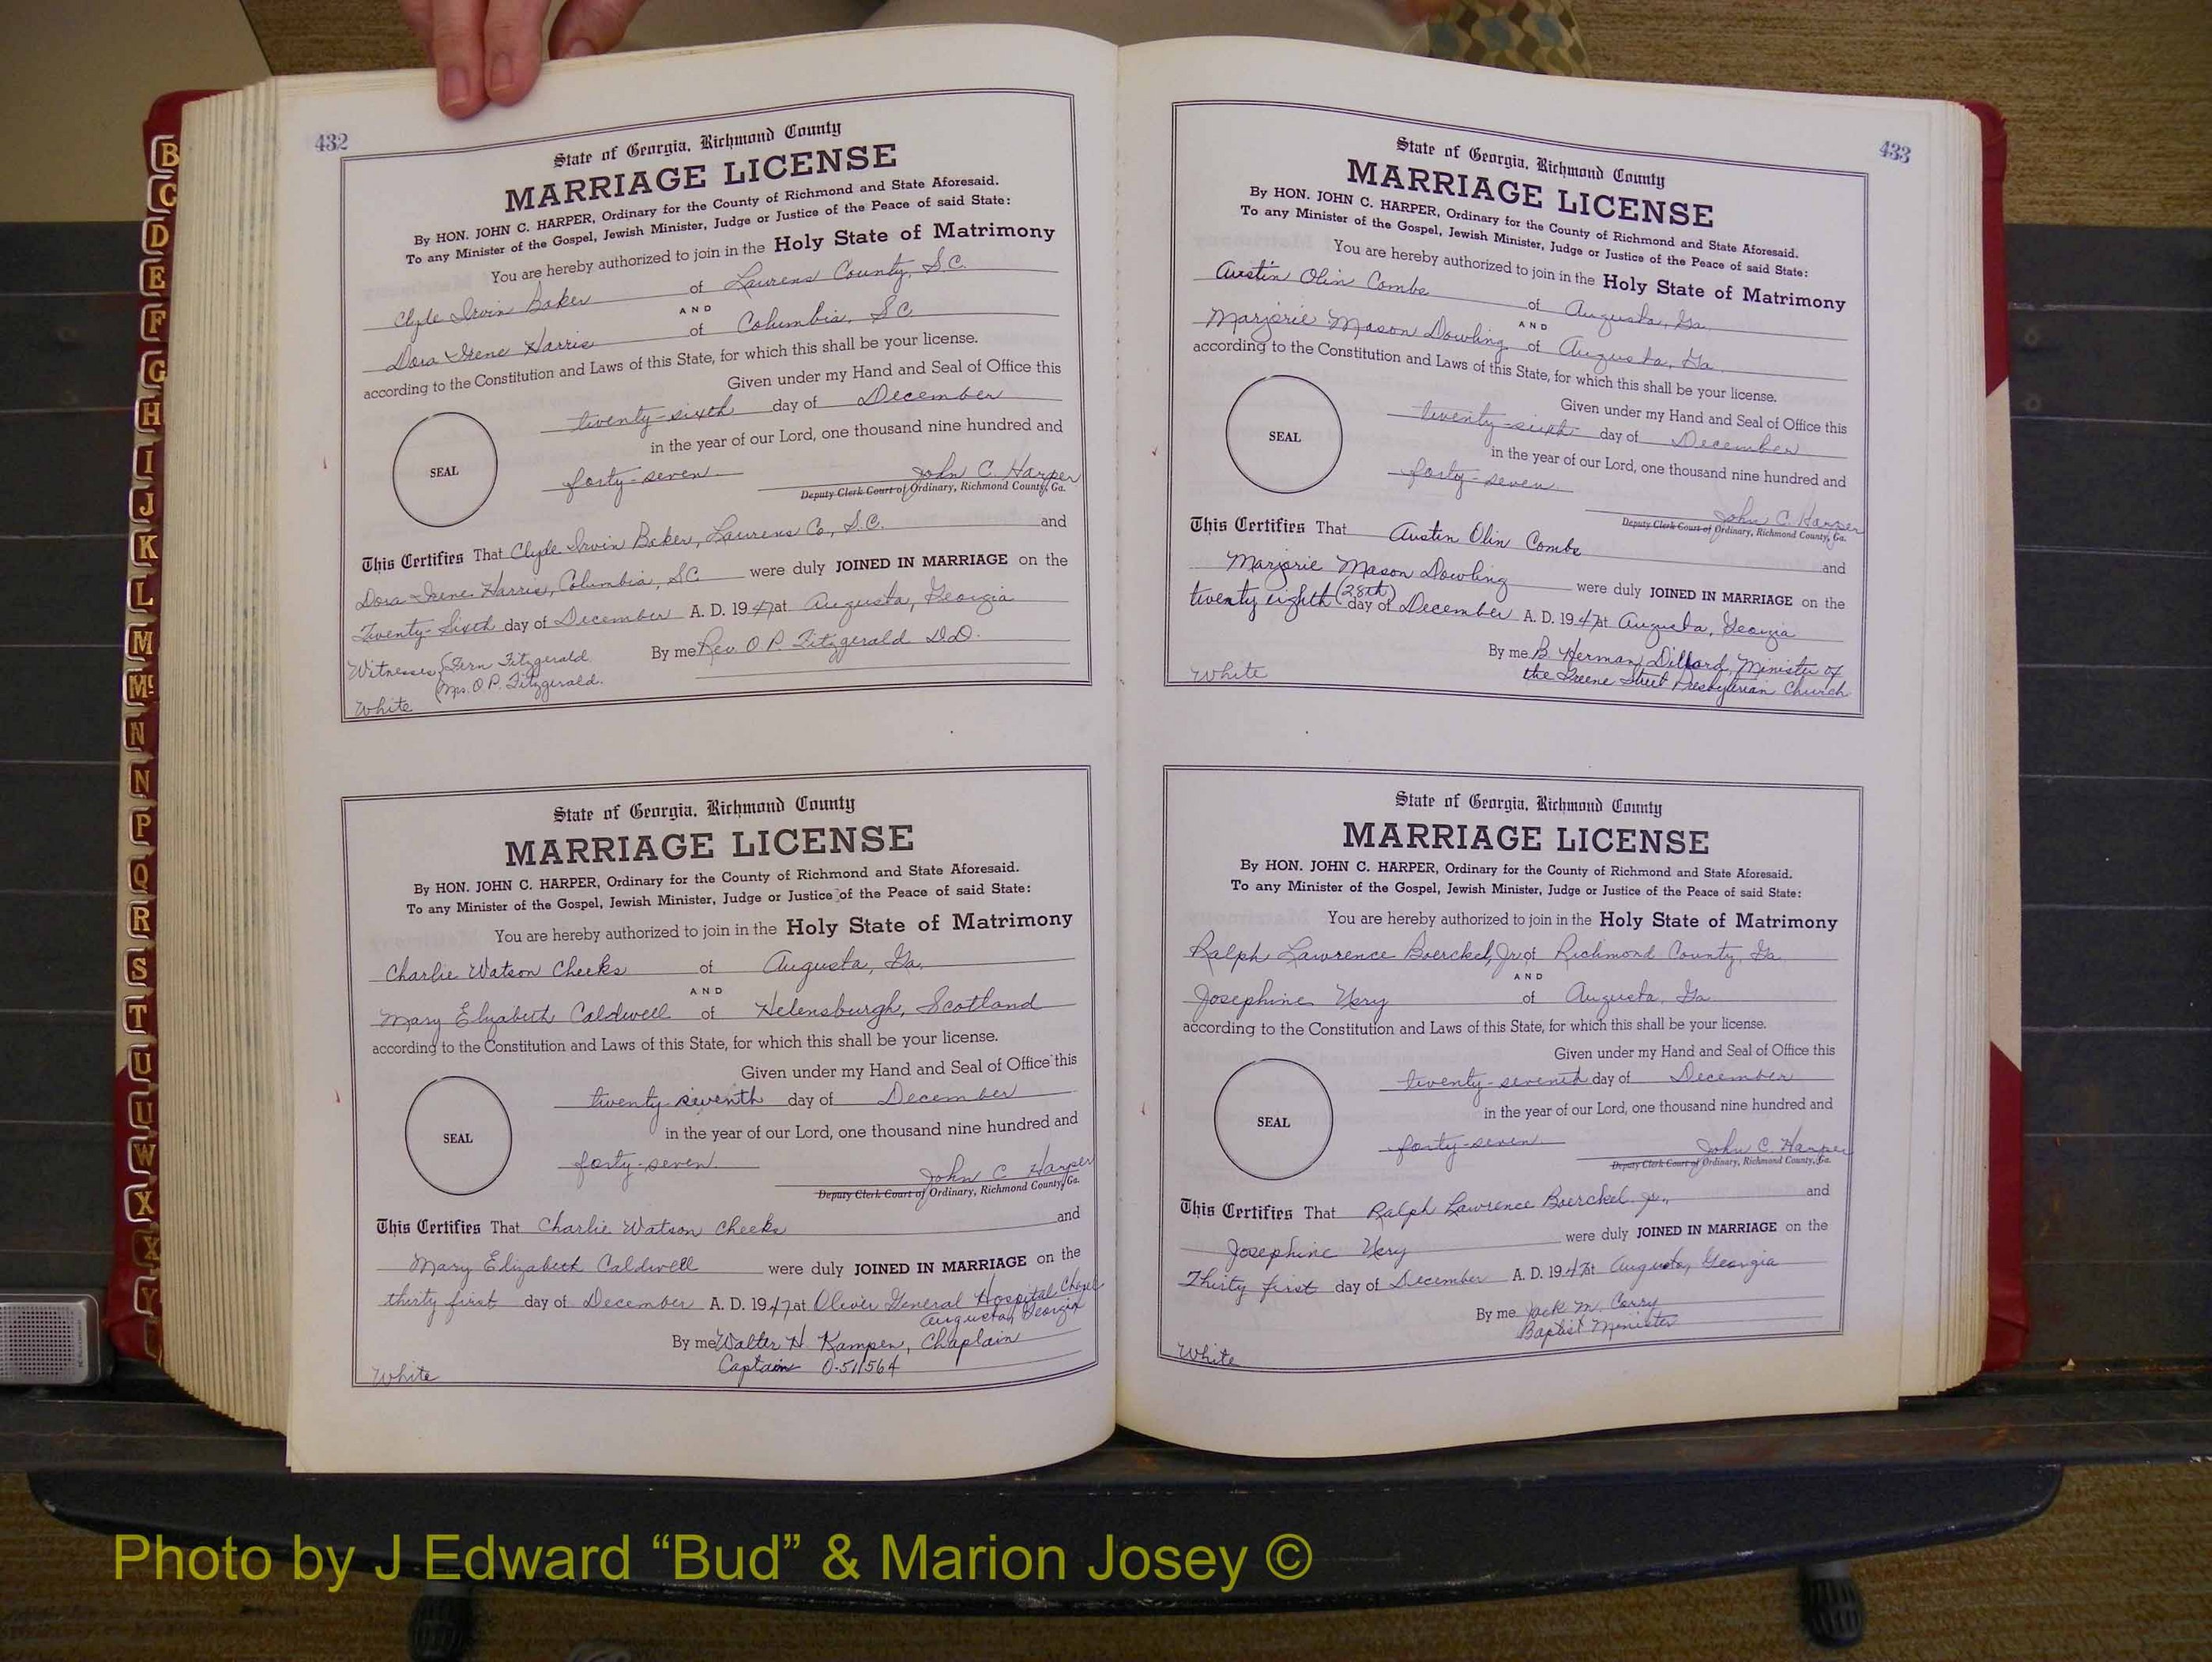 432
State of Georgia, Richmond County
MARRIAGE LICENSE
By HON. JOHN C. HARPER, Ordinary for the County of Richmond and State Aforesaid.
To any Minister of the Gospel, Jewish Minister, Judge or Justice of the Peace of said State:
You are hereby authorized to join in the Holy State of Matrimony
Clyde Irvin Baker of Laurens County, S.C.
AND
Dora Irene Harris of Columbia, SC
according to the Constitution and Laws of this State, for which this shall be your license.
Given under my Hand and Seal of Office this
twenty-sixth day of December
in the year of our Lord, one thousand nine hundred and
forty-seven. John C. Harper
SEAL
Deputy Clerk Court of Ordinary, Richmond County, Ga.
This Certifies That Clyde Irvin Baker, Laurens Co, S.C. and
Dora Irene Harris, Columbia, SC were duly JOINED IN MARRIAGE on the
Twenty-Sixth day of December A. D. 1947 at Augusta, Georgia
By me Rev. O P. Fitzgerald D.D.
Witnesses Fern Fitzgerald
Mrs. O P. Fitzgerald.
White
State of Georgia, Richmond County
MARRIAGE LICENSE
By HON. JOHN C. HARPER, Ordinary for the County of Richmond and State Aforesaid.
To any Minister of the Gospel, Jewish Minister, Judge or Justice of the Peace of said State:
You are hereby authorized to join in the Holy State of Matrimony
Charlie Watson Cheeks of Augusta, Ga.
AND
Mary Elizabeth Caldwell of Helensburgh, Scotland
according to the Constitution and Laws of this State, for which this shall be your license.
Given under my Hand and Seal of Office this
twenty-seventh day of December
in the year of our Lord, one thousand nine hundred and
SEAL
forty-seven. John C Harper
Deputy Clerk Court of Ordinary, Richmond County, Ga.
This Certifies That Charlie Watson Cheeks and
Mary Elizabeth Caldwell were duly JOINED IN MARRIAGE on the
thirty first day of December A. D. 1947 at Oliver General Hospital Chapel
Augusta, Georgia
By me Walter H. Kampen, Chaplain
Captain O-511564
White
433
State of Georgia, Richmond County
MARRIAGE LICENSE
By HON. JOHN C. HARPER, Ordinary for the County of Richmond and State Aforesaid.
To any Minister of the Gospel, Jewish Minister, Judge or Justice of the Peace of said State:
You are hereby authorized to join in the Holy State of Matrimony
Austin Olin Combs of Augusta, Ga.
AND
Marjorie Mason Dowling of Augusta, Ga.
according to the Constitution and Laws of this State, for which this shall be your license.
Given under my Hand and Seal of Office this
twenty-sixth day of December
SEAL
in the year of our Lord, one thousand nine hundred and
forty-seven. John C. Harper
Deputy Clerk Court of Ordinary, Richmond County, Ga.
This Certifies That Austin Olin Combs and
Marjorie Mason Dowling were duly JOINED IN MARRIAGE on the
twenty eighth (28th) day of December A. D. 1947 at Augusta, Georgia
By me B. Herman Dillard, Minister of
the Greene Street Presbyterian Church
White
State of Georgia, Richmond County
MARRIAGE LICENSE
By HON. JOHN C. HARPER, Ordinary for the County of Richmond and State Aforesaid.
To any Minister of the Gospel, Jewish Minister, Judge or Justice of the Peace of said State:
You are hereby authorized to join in the Holy State of Matrimony
Ralph Lawrence Boerckel, Jr. of Richmond County, Ga
AND
Josephine of Augusta, Ga
according to the Constitution and Laws of this State, for which this shall be your license.
Given under my Hand and Seal of Office this
twenty-seventh day of December
in the year of our Lord, one thousand nine hundred and
SEAL
forty-seven. John C. Harper
Deputy Clerk Court of Ordinary, Richmond County, Ga.
This Certifies That Ralph Lawrence Boerckel Jr., and
Josephine were duly JOINED IN MARRIAGE on the
Thirty first day of December A. D. 1947 at Augusta, Georgia
By me Jack M. Corry
Baptist Minister
White
B
C
D
E
F
G
H
I
J
K
L
M
Mc
N
N
P
Q
R
S
T
U
U
W
X
X
Y
Photo by J Edward “Bud” & Marion Josey ©